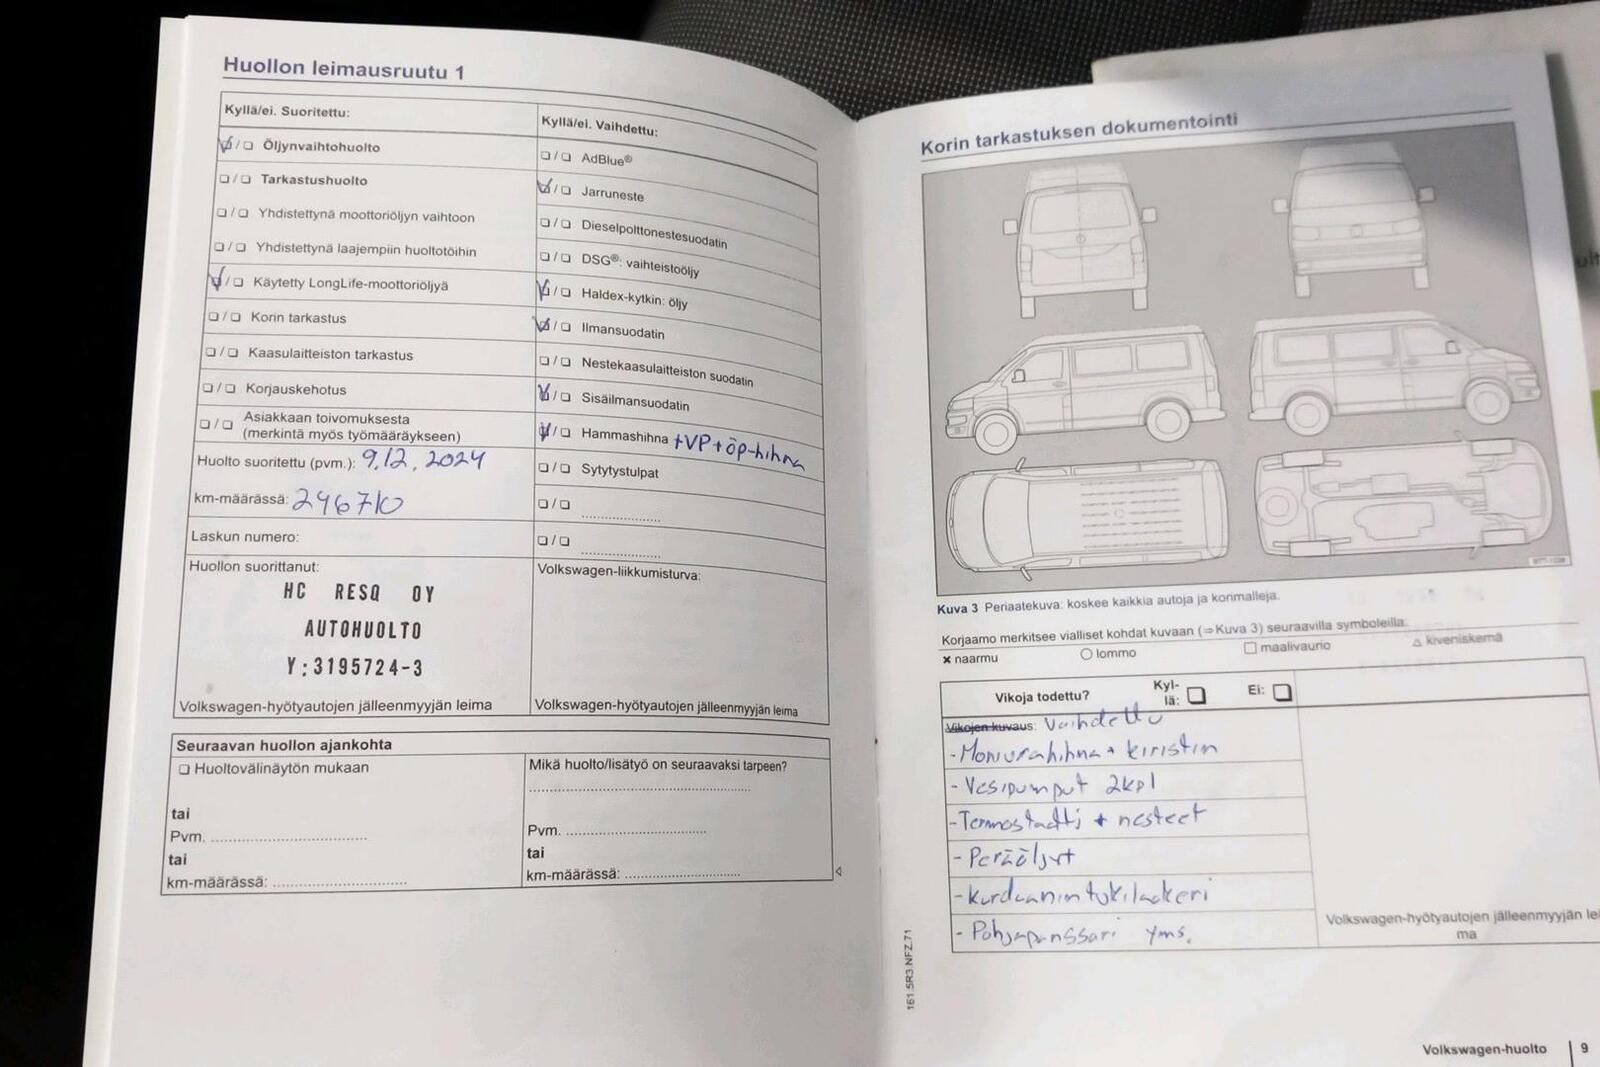 Huollon leimausruutu 1
Kyllä/ei. Suoritettu:
Öljynvaihtohuolto
Tarkastushuolto
Yhdistettynä moottoriöljyn vaihtoon
Yhdistettynä laajempiin huoltotöihin
Käytetty LongLife-moottoriöljyä
Korin tarkastus
Kaasulaitteiston tarkastus
Korjauskehotus
Asiakkaan toivomuksesta
(merkintä myös työmääräykseen)
Huolto suoritettu (pvm.): 9.12.2024
km-määrässä: 246710
Laskun numero:
Huollon suorittanut:
HC RESQ OY
AUTOHUOLTO
Y:3195724-3
Volkswagen-hyötyautojen jälleenmyyjän leima
Kyllä/ei. Vaihdettu:
AdBlue®
Jarruneste
Dieselpolttonestesuodatin
DSG®: vaihteistoöljy
Haldex-kytkin: öljy
Ilmansuodatin
Nestekaasulaitteiston suodatin
Sisäilmansuodatin
Hammashihna +VP+öp-hihna
Sytytystulpat
Volkswagen-liikkumisturva:
Volkswagen-hyötyautojen jälleenmyyjän leima
Seuraavan huollon ajankohta
Huoltovälinäytön mukaan
tai
Pvm.
tai
km-määrässä:
Mikä huolto/lisätyö on seuraavaksi tarpeen?
Pvm.
tai
km-määrässä:
Korin tarkastuksen dokumentointi
Kuva 3 Periaatekuva: koskee kaikkia autoja ja korimalleja.
Korjaamo merkitsee vialliset kohdat kuvaan (⇒Kuva 3) seuraavilla symboleilla:
× naarmu ○ lommo □ maalivaurio △ kiveniskemä
Vikoja todettu? Kyl-
lä: Ei:
Vikojen kuvaus: Vaihdettu
- Moniurahihna + kiristin
- Vesipumput 2kpl
- Termostaatti + nesteet
- Peräöljyt
- Kardaanin tukilaakeri
- Pohjapanssari yms.
Volkswagen-hyötyautojen jälleenmyyjän lei
ma
161.5R3.NFZ.71
Volkswagen-huolto 9